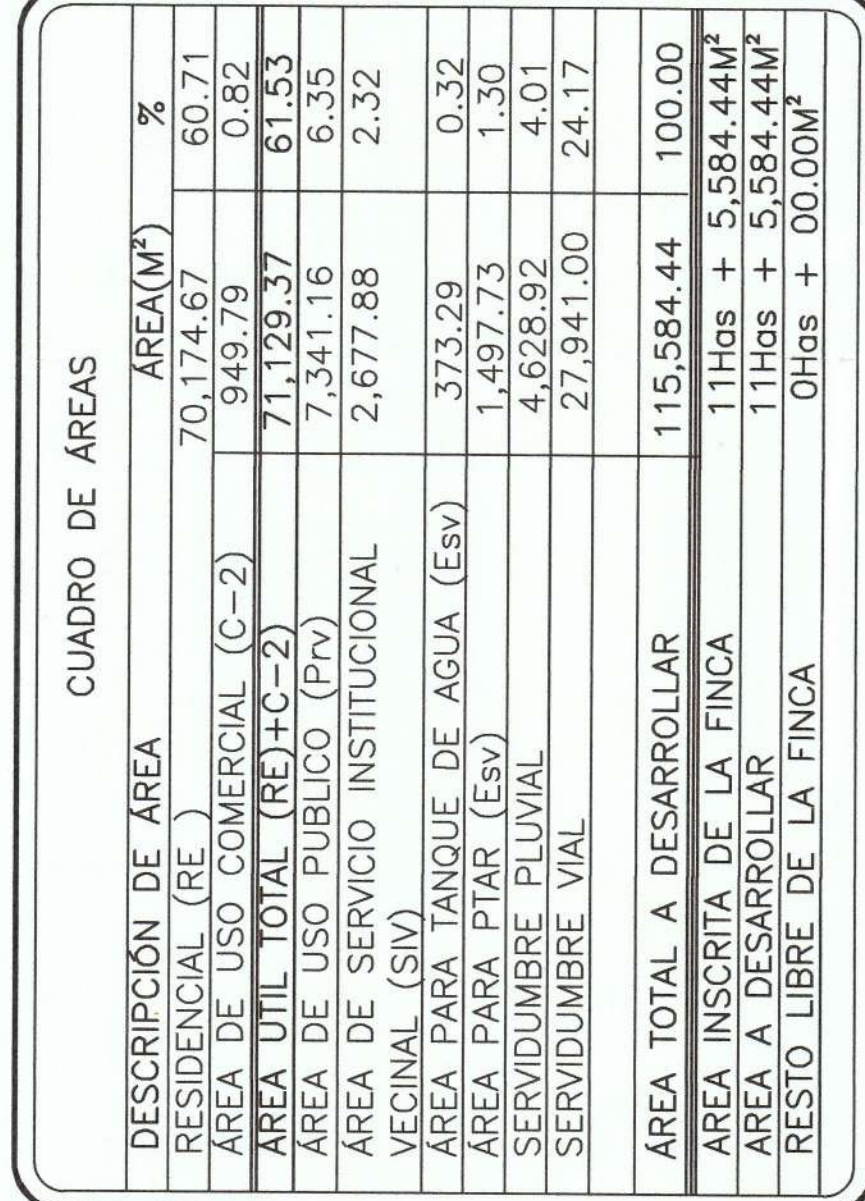 CUADRO DE ÁREAS
DESCRIPCIÓN DE ÁREA ÁREA(M²) %
RESIDENCIAL (RE ) 70,174.67 60.71
ÁREA DE USO COMERCIAL (C-2) 949.79 0.82
ÁREA UTIL TOTAL (RE)+C-2) 71,129.37 61.53
ÁREA DE USO PUBLICO (Prv) 7,341.16 6.35
ÁREA DE SERVICIO INSTITUCIONAL 2,677.88 2.32
VECINAL (SIV)
ÁREA PARA TANQUE DE AGUA (Esv) 373.29 0.32
ÁREA PARA PTAR (Esv) 1,497.73 1.30
SERVIDUMBRE PLUVIAL 4,628.92 4.01
SERVIDUMBRE VIAL 27,941.00 24.17
ÁREA TOTAL A DESARROLLAR 115,584.44 100.00
AREA INSCRITA DE LA FINCA 11Has + 5,584.44M²
AREA A DESARROLLAR 11Has + 5,584.44M²
RESTO LIBRE DE LA FINCA 0Has + 00.00M²